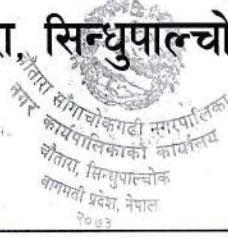 सिन्धुपाल्चो
चौतारा साँगाचोकगढी नगरपालिका
नगर कार्यपालिकाको कार्यालय
चौतारा, सिन्धुपाल्चोक
बागमती प्रदेश, नेपाल
२०७३